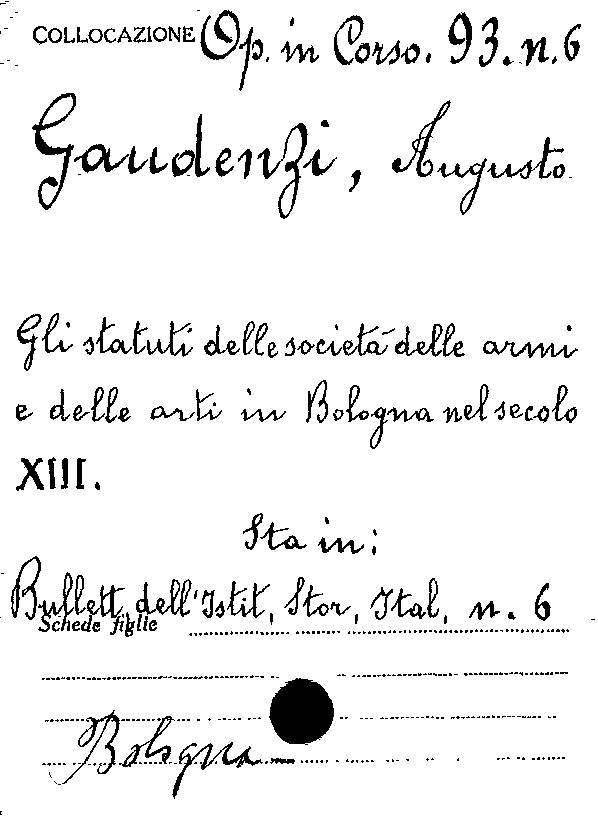 COLLOCAZIONE Op. in Corso. 93. n. 6
Gaudenzi, Augusto
Gli statuti delle società delle armi
e delle arti in Bologna nel secolo
XIII.
Sta in:
Bullett. dell'Istit, Stor, Ital, n. 6
Schede figlie
Bologna